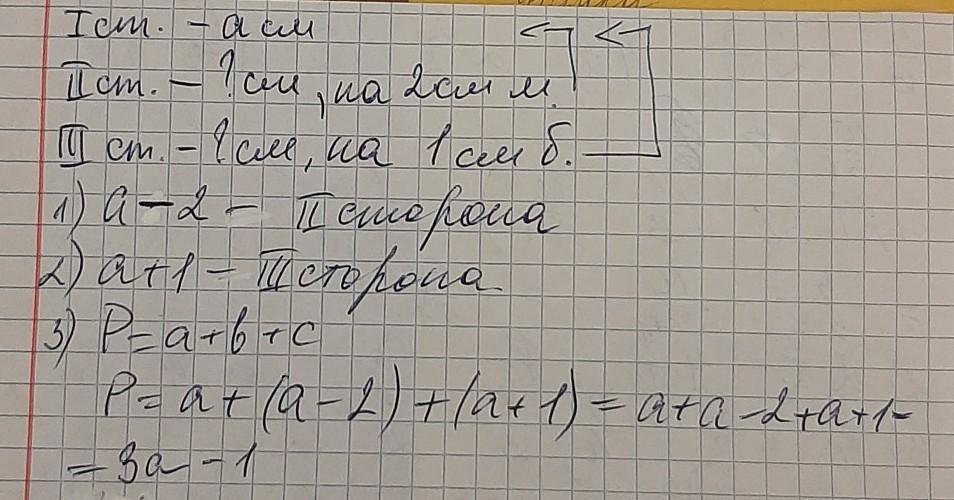 I ст. - a см
II ст. - ? см, на 2 см м.
III ст. - ? см, на 1 см б.
1) a - 2 - II сторона
2) a + 1 - III сторона
3) P = a + b + c
P = a + (a - 2) + (a + 1) = a + a - 2 + a + 1 =
= 3a - 1